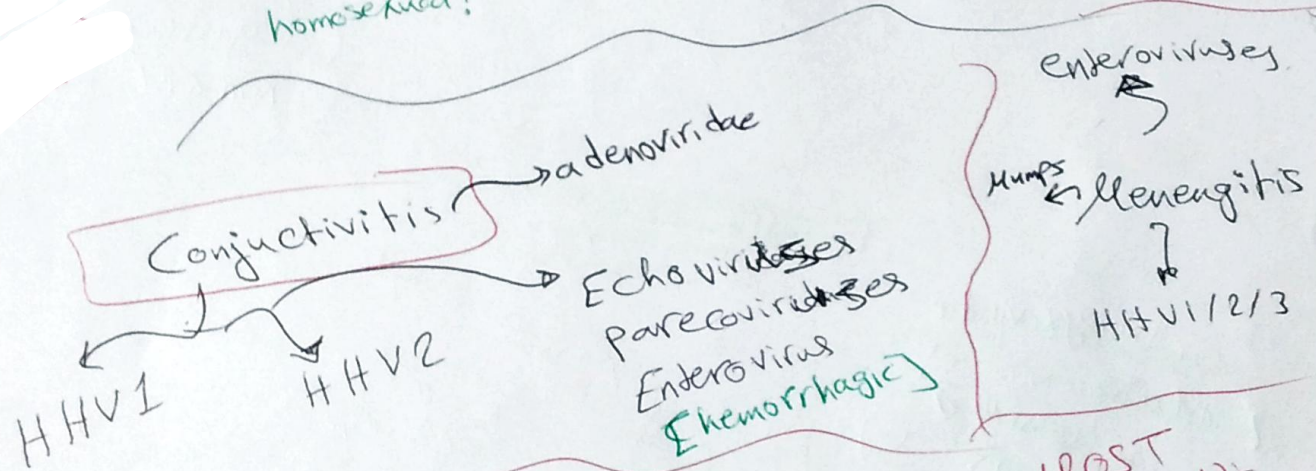 homosexual?
Conjuctivitis
adenoviridae
Echoviruses
pareco
Enterovirus
[hemorrhagic]
HHV1
HHV2
enteroviruses
Mumps
Menengitis
HHV1/2/3
POST